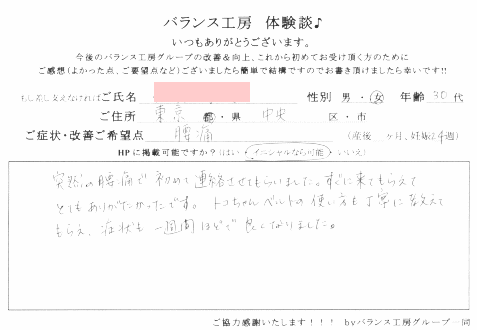 バランス工房 体験談♪
いつもありがとうございます。
今後のバランス工房グループの改善&向上、これから初めてお受け頂く方のために
ご感想(よかった点、ご要望点など)ございましたら簡単で結構ですのでお書き頂けましたら幸いです!!
もし差し支えなければご氏名 性別 男・女 年齢 30代
ご住所 東京 都・県 中央 区・市
ご症状・改善ご希望点 腰痛 (産後 ヶ月、妊娠24週)
HPに掲載可能ですか?(はい・イニシャルなら可能・いいえ)
突然の腰痛で初めて連絡させてもらいました。すぐに来てもらえて
とてもありがたかったです。トコちゃんベルトの使い方も丁寧に教えて
もらえ、症状も一週間ほどで良くなりました。
ご協力感謝いたします!!! byバランス工房グループ一同